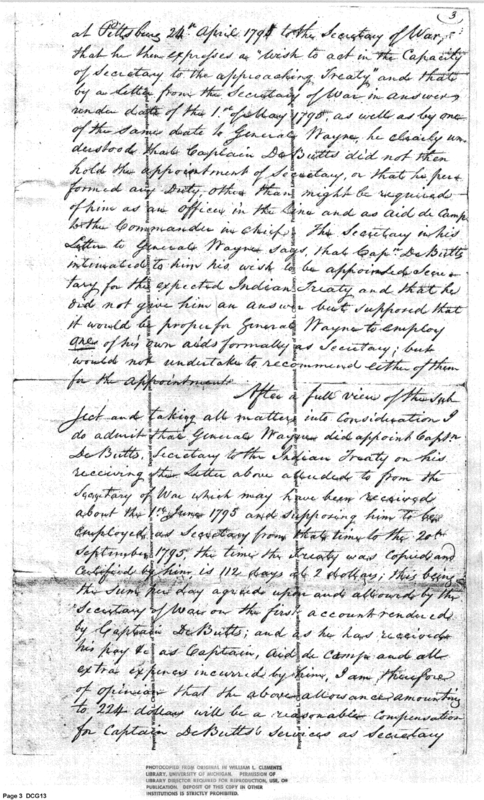 3
at Pittsburg 24th April 1795 to the Secretary of War,
that he then expresses a "wish to act in the Capacity
of Secretary to the approaching Treaty" and that
by a Letter from the Secretary of War in answer,
under date of the 1st of May 1795, as well as by one
of the same date to General Wayne, he clearly un
derstood that Captain De Butts did not then
hold the appointment of Secretary, or that he per
formed any Duty, other than might be required
of him as an officer in the Line and as Aid de Camp
to the Commander in Chief. The Secretary in his
Letter to General Wayne says, that Capn. De Butts
intimated to him his wish to be appointed Secre
tary for the expected Indian Treaty and that he
did not give him an answer but supposed that
it would be proper for General Wayne to employ
one of his own aids formally as Secretary; but
would not undertake to recommend either of them
for the appointment.
After a full view of the sub
ject and taking all matters into Consideration I
do admit that General Wayne did appoint Captn
De Butts, Secretary to the Indian Treaty on his
receiving the Letter above alluded to from the
Secretary of War which may have been received
about the 1st June 1795 and supposing him to be
employed as Secretary from that time to the 20th
September 1795, the time the Treaty was Copied and
Certified by him, is 112 days at 2 dollars; this being
the sum per day agreed upon and allowed by the
Secretary of War on the first account rendered
by Captain De Butts; and as he has received
his pay &c as Captain, Aid de Camp and all
extra expences incurred by him, I am therefore
of opinion that the above allowance amounting
to 224 dollars will be a reasonable Compensation
for Captain De Butts's Services as Secretary
PHOTOCOPIED FROM ORIGINAL IN WILLIAM L. CLEMENTS
LIBRARY, UNIVERSITY OF MICHIGAN. PERMISSION OF
LIBRARY DIRECTOR REQUIRED FOR REPRODUCTION, USE, OR
PUBLICATION. DEPOSIT OF THIS COPY IN OTHER
INSTITUTIONS IS STRICTLY PROHIBITED.
Page 3 DCG13